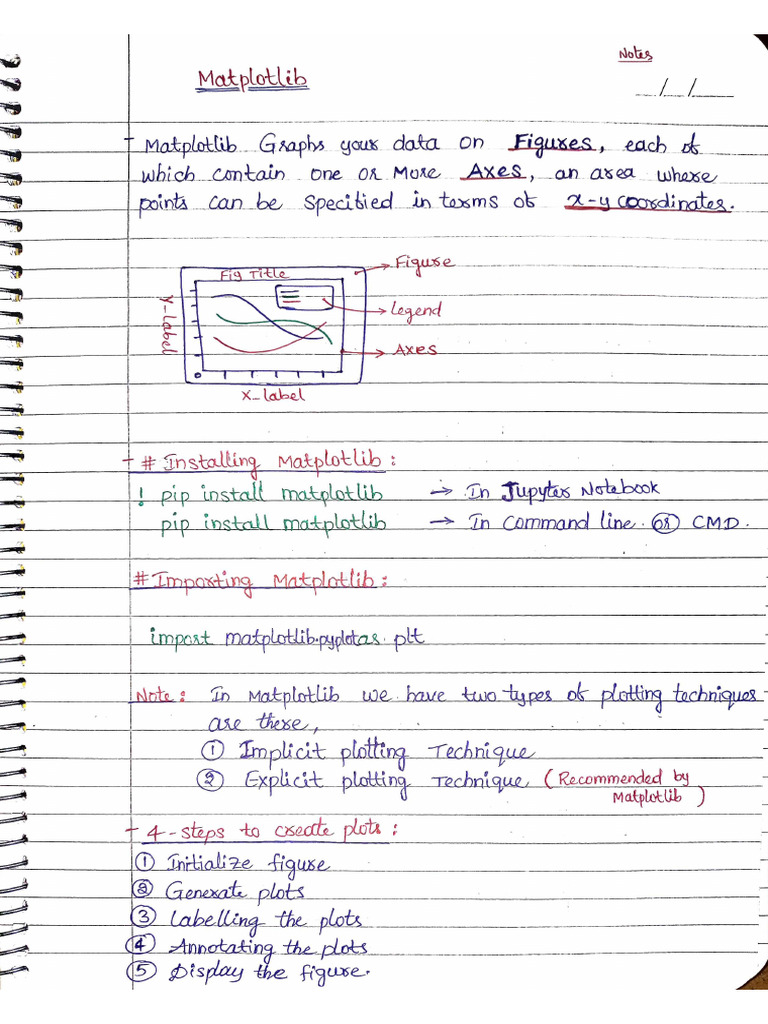 Notes
Matplotlib
_/_/__
- Matplotlib Graphs your data on Figures, each of
which contain one or more Axes, an area where
points can be specified in terms of x-y coordinates.
Fig Title
→ Figure
Y-label
→ Legend
→ Axes
0
X-label
- # Installing Matplotlib:
! pip install matplotlib → In Jupyter Notebook
pip install matplotlib → In Command line or CMD.
# Importing Matplotlib:
import matplotlib.pyplot as plt
Note: In Matplotlib we have two types of plotting techniques
are there,
① Implicit plotting Technique
② Explicit plotting Technique (Recommended by
Matplotlib)
- 4-steps to create plots:
① Initialize figure
② Generate plots
③ Labelling the plots
④ Annotating the plots
⑤ Display the figure.